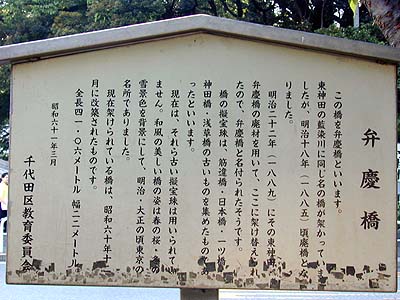 弁慶橋
この橋を弁慶橋といいます。
東神田の藍染川に同じ名の橋が架かっていま
したが、明治十八年(一八八五)頃廃橋とな
りました。
明治二十二年(一八八九)にその東神田
弁慶橋の廃材を用いて、ここに架け替えられ
たので、弁慶橋と名付られたそうです。
橋の擬宝珠は、筋違橋・日本橋・一ツ橋
神田橋・浅草橋の古いものを集めたもの
ったといいます。
現在は、それら古い擬宝珠は用いられてい
ません。和風の美しい橋の姿は春の桜・冬の
雪景色を背景にして、明治・大正の頃東京の
名所でありました。
現在架けられている橋は、昭和六十年十
月に改築されたものです。
全長四一・〇六メートル 幅二二メートル
昭和六十一年三月
千代田区教育委員会